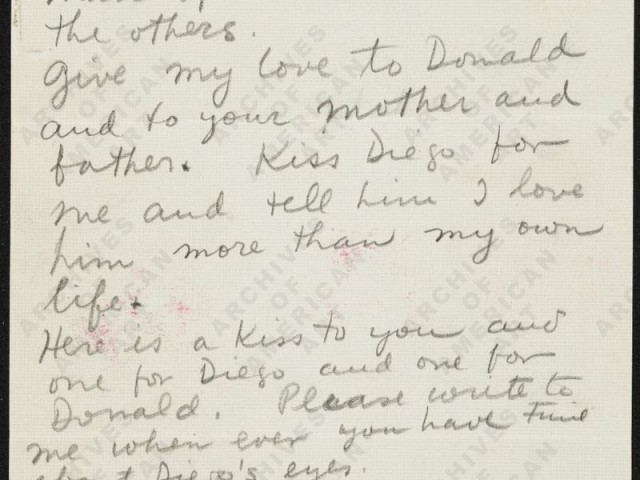 the others.
Give my love to Donald
and to your mother and
father. Kiss Diego for
me and tell him I love
him more than my own
life.
Here is a Kiss to you and
one for Diego and one for
Donald. Please write to
me when ever you have time
about Diego's eyes.
ARCHIVES OF AMERICAN ART